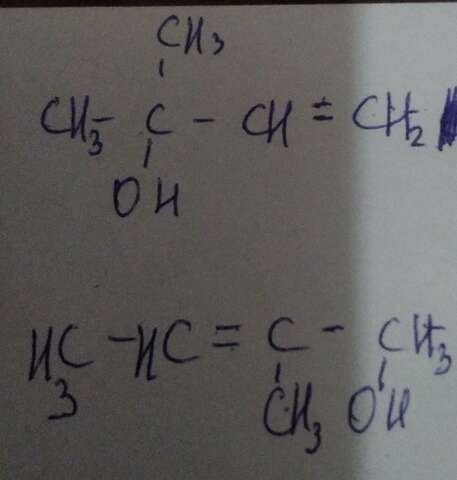 CH₃
CH₃ - C - CH = CH₂
OH
H₃C - HC = C - CH₃
CH₃ OH